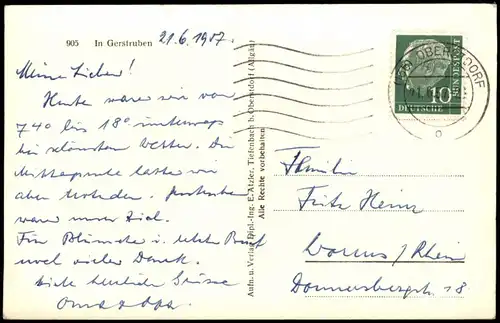 905 In Gerstruben
21.6.1957.
Meine Lieben!
Heute waren wir von
7 40 bis 18° unterwegs
bei schönstem Wetter. Die
Mittagspause hatten wir
aber
war unser Ziel.
Für Blümele i. letzten Brief
noch vielen Dank.
Viele herzliche Grüsse
Oma + Opa.
Aufn. u. Verlag Dipl.-Ing. E. Atzler, Tiefenbach b. Oberstdorf (Allgäu)
Alle Rechte vorbehalten
OBERSTDORF
10
DEUTSCHE
BUNDESPOST
Familie
Fritz Heinz
Worms/Rhein
Donnersbergstr. 18